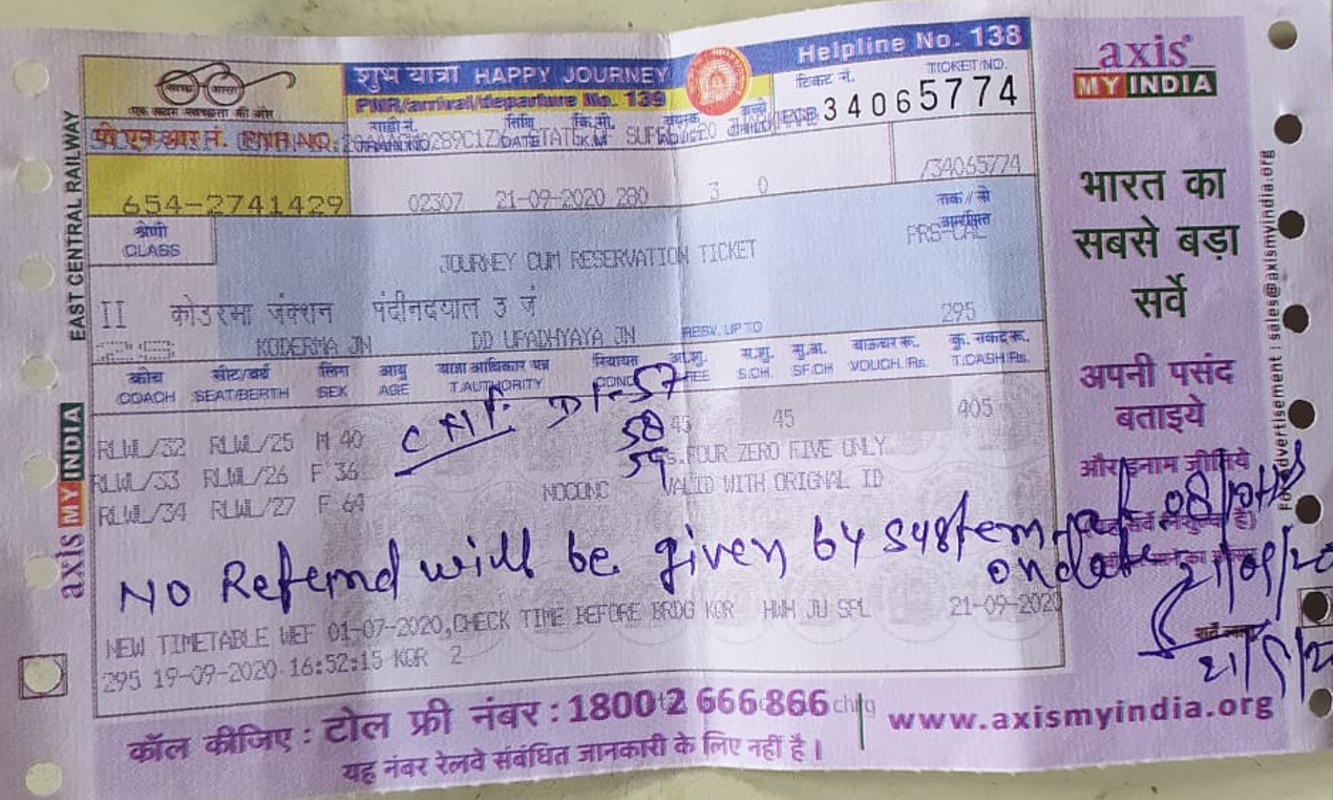 शुभ यात्रा HAPPY JOURNEY
Helpline No. 138
स्वच्छ भारत
एक कदम स्वच्छता की ओर
PNR/arrival/departure No. 139
टिकट नं. TICKET NO.
34065774
पी एन आर नं. PNR NO:
गाड़ी नं. TRAIN NO तिथि DATE कि.मी. K.M वयस्क बच्चे
654-2741429 02307 21-09-2020 280 3 0 /34065774
श्रेणी
CLASS
JOURNEY CUM RESERVATION TICKET
II कोडरमा जंक्शन पंदीनदयाल उ जं 295
2S KODERMA JN DD UPADHYAYA JN RESV. UP TO
कोच सीट/बर्थ लिंग आयु यात्रा अधिकार पत्र रियायत आ.शु. स.शु. सु.अ. वाऊचर रू. कु. नकद रू.
COACH SEAT/BERTH SEX AGE T.AUTHORITY CONC. S.CH. SF.CH VOUCH./Rs. T.CASH/Rs.
RLWL/32 RLWL/25 M 40 45 45 405
RLWL/33 RLWL/26 F 36 Rs.FOUR ZERO FIVE ONLY
RLWL/34 RLWL/27 F 64 NOCONC VALID WITH ORIGNAL ID
D1-57
58
59
No Refernd will be given by system
on date 21/09/20
NEW TIMETABLE WEF 01-07-2020,CHECK TIME BEFORE BRDG KQR HWH JU SPL 21-09-2020
295 19-09-2020 16:52:15 KQR 2
कॉल कीजिए : टोल फ्री नंबर : 1800 2 666 866
www.axismyindia.org
यह नंबर रेलवे संबंधित जानकारी के लिए नहीं है।
EAST CENTRAL RAILWAY
axis MY INDIA
axis
MY INDIA
भारत का
सबसे बड़ा
सर्वे
अपनी पसंद
बताइये
और इनाम जीतिये
For advertisement : sales@axismyindia.org